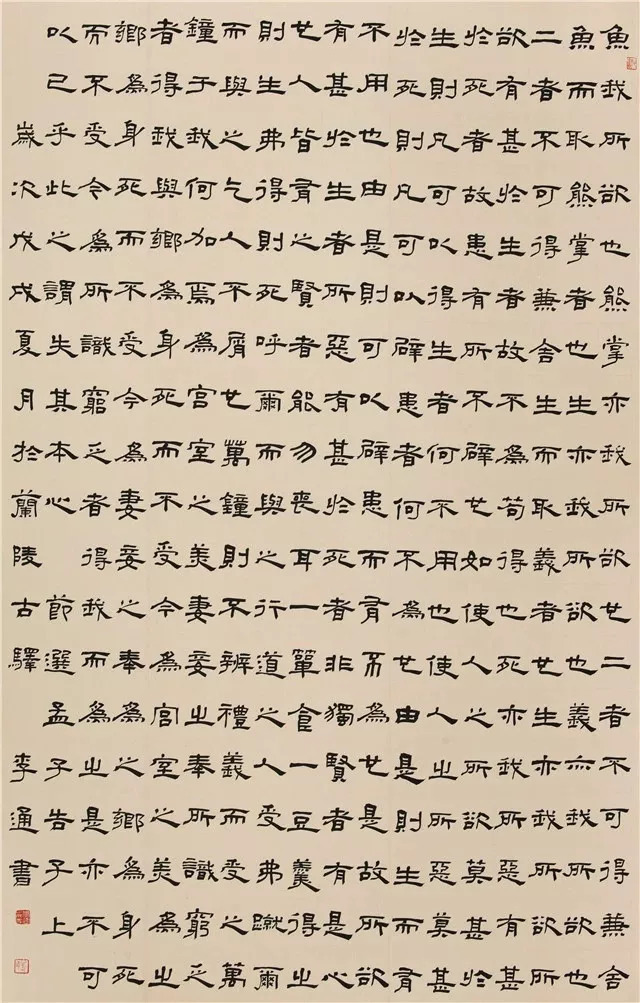 魚我所欲也熊掌亦我所欲也二者不可得兼舍
魚而取熊掌者也生亦我所欲也義亦我所欲也
二者不可得兼舍生而取義者也生亦我所欲所
欲有甚於生者故不為苟得也死亦我所惡有甚
於死者故患有所不辟也如使人之所欲莫甚於
生則凡可以得生者何不用也使人之所惡莫甚
於死則凡可以辟患者何不為也由是則生而有
不用也由是則可以辟患而有不為也是故所欲
有甚於生者所惡有甚於死者非獨賢者有是心
也人皆有之賢者能勿喪耳一簞食一豆羹得之
則生弗得則死呼爾而與之行道之人受弗蹴爾
而與之乞人不屑也萬鐘則不辨禮義而受之萬
鐘于我何加焉為宮室之美妻妾之奉所識窮乏
者得我與鄉為身死而不受今為宮室之美為之
鄉為身死而不受今為妻妾之奉為之鄉為身死
而不受今為所識窮乏者得我而為之是亦不可
以已乎此之謂失其本心 節選孟子告子上
歲次戊戌夏月於蘭陵古驛 李通書